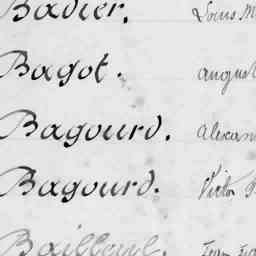 Badier. Louis M
Bagot. August
Bagourd. Alexan
Bagourd. Victor
Bailleul. Jean Fra